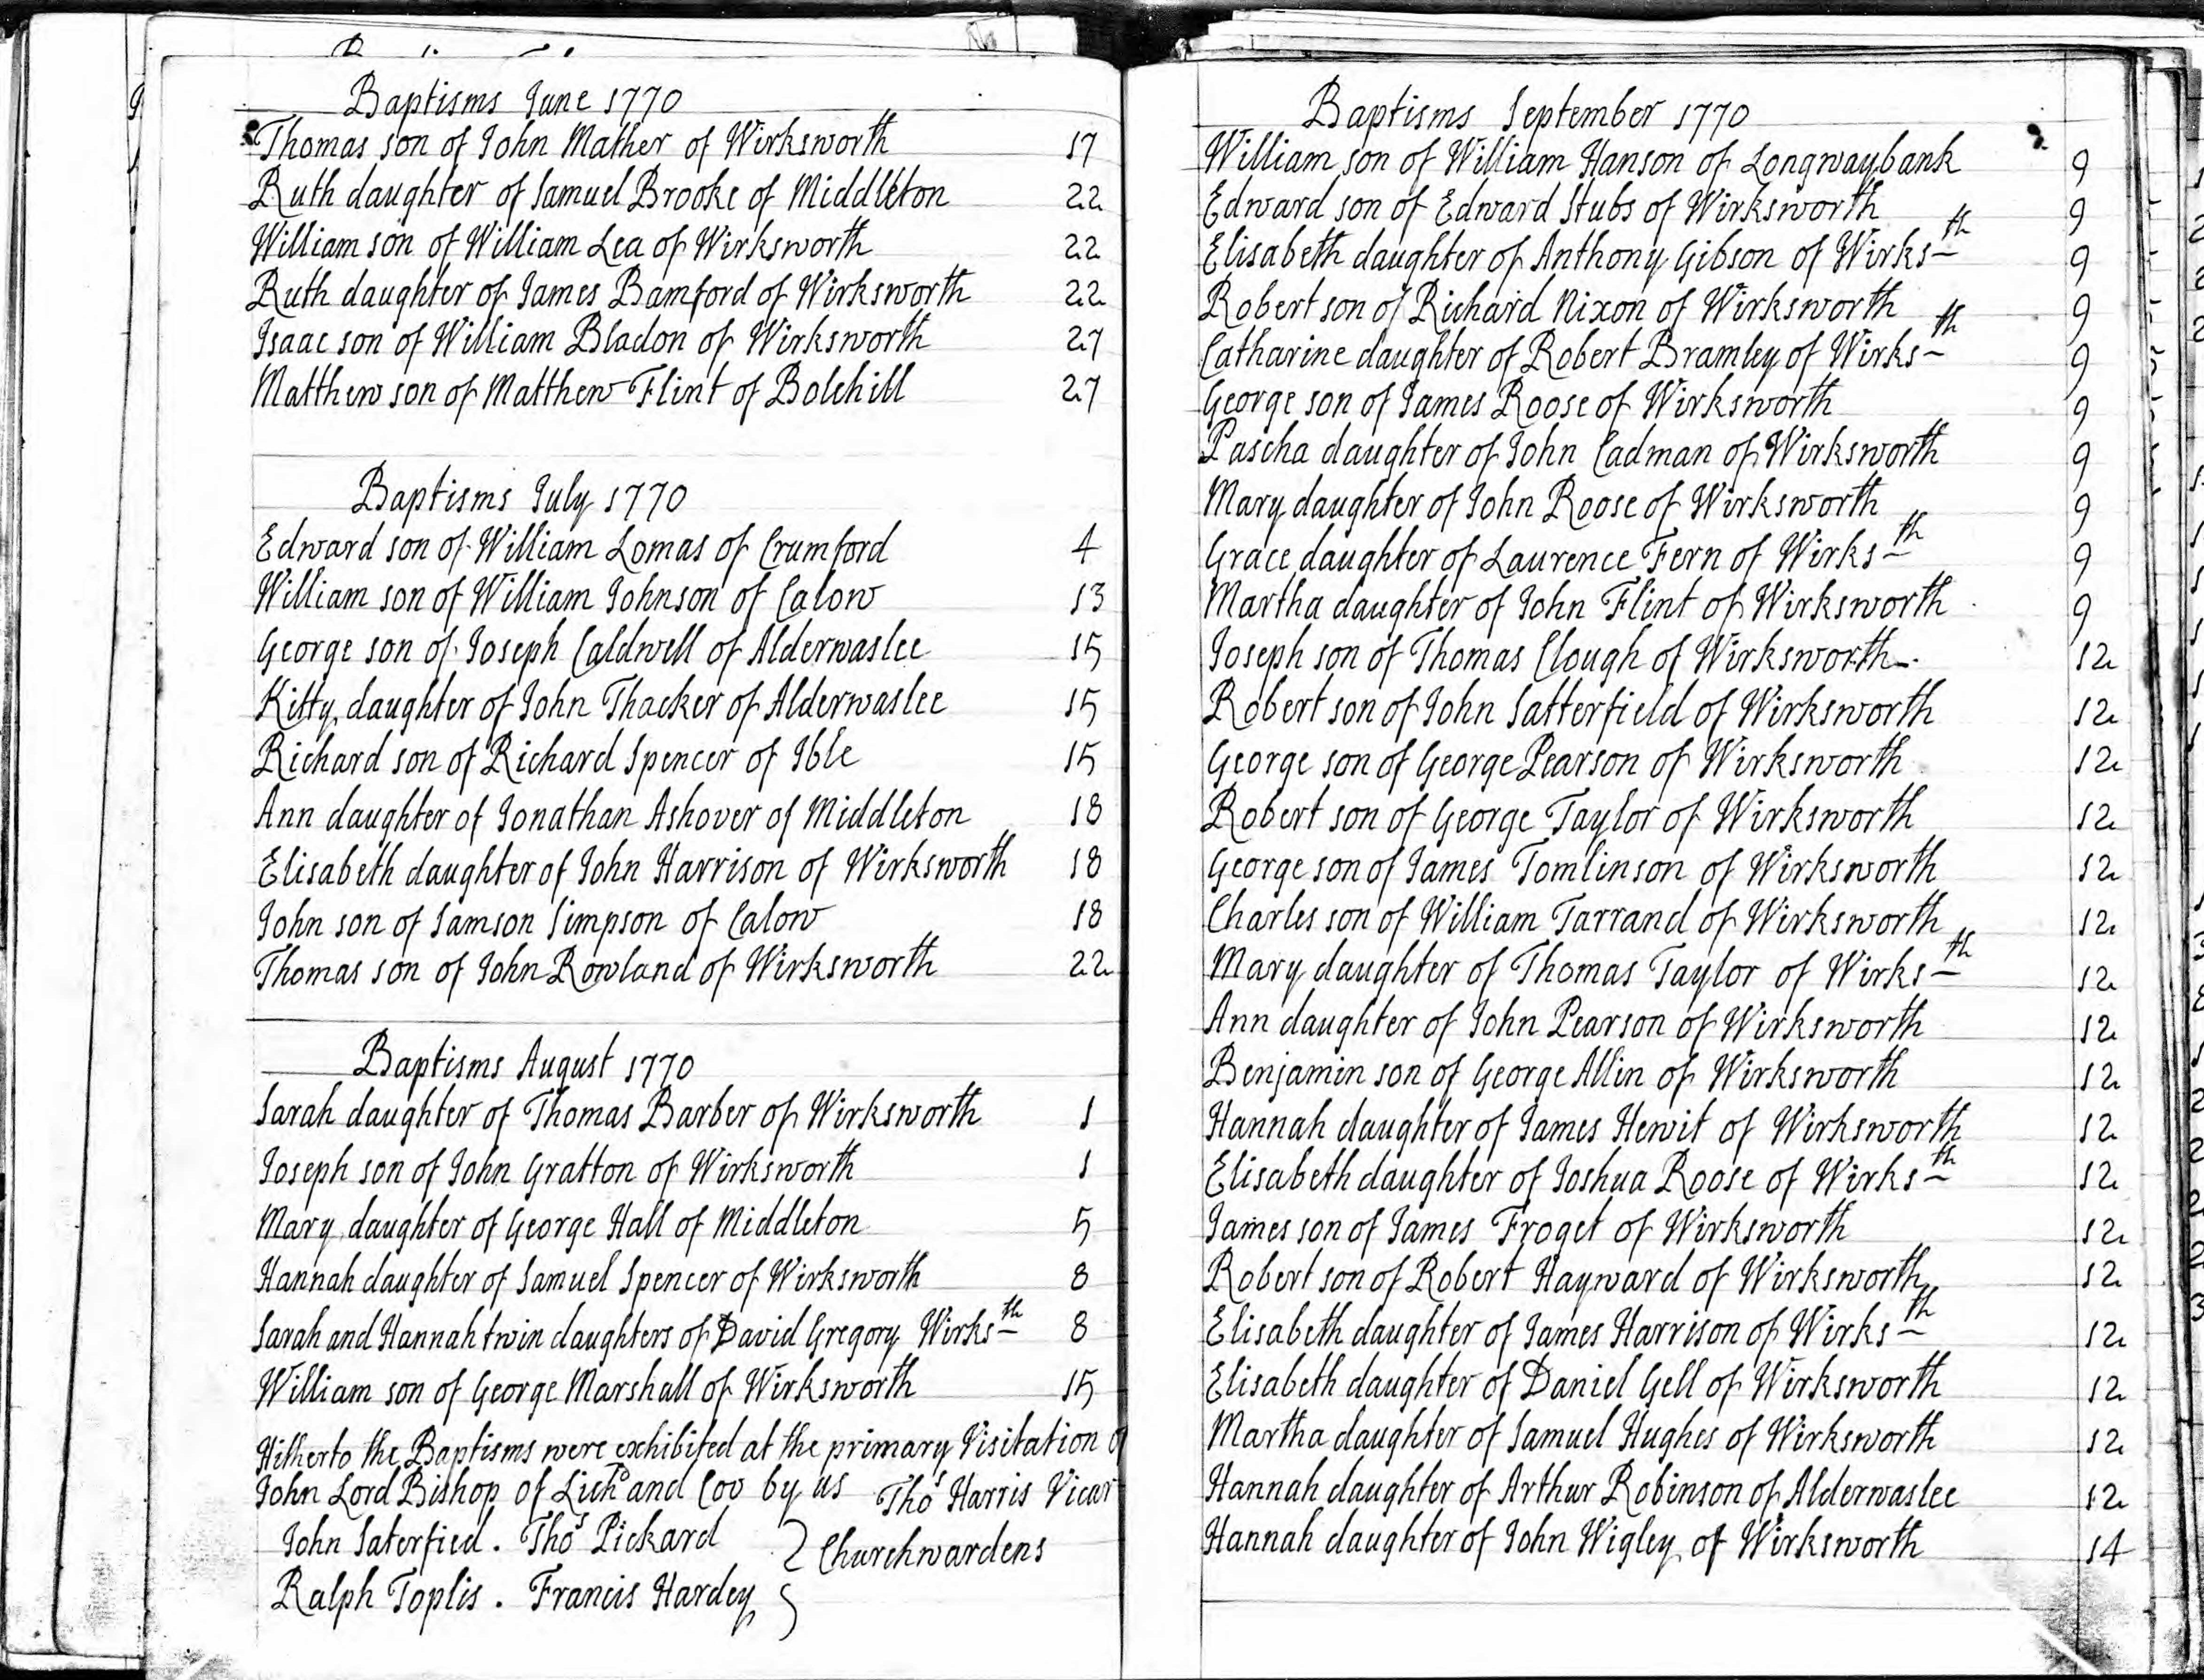 Baptisms June 1770
Thomas son of John Mather of Wirksworth 17
Ruth daughter of Samuel Brooke of Middleton 22
William son of William Lea of Wirksworth 22
Ruth daughter of James Bamford of Wirksworth 22
Isaac son of William Bladon of Wirksworth 27
Matthew son of Matthew Flint of Bolehill 27
Baptisms July 1770
Edward son of William Lomas of Crumford 4
William son of William Johnson of Calow 13
George son of Joseph Caldwell of Alderwaslee 15
Kitty daughter of John Thacker of Alderwaslee 15
Richard son of Richard Spencer of Ible 15
Ann daughter of Jonathan Ashover of Middleton 18
Elisabeth daughter of John Harrison of Wirksworth 18
John son of Samson Simpson of Calow 18
Thomas son of John Rowland of Wirksworth 22
Baptisms August 1770
Sarah daughter of Thomas Barber of Wirksworth 1
Joseph son of John Gratton of Wirksworth 1
Mary daughter of George Hall of Middleton 5
Hannah daughter of Samuel Spencer of Wirksworth 8
Sarah and Hannah twin daughters of David Gregory Wirksth 8
William son of George Marshall of Wirksworth 15
Hitherto the Baptisms were exhibited at the primary Visitation of
John Lord Bishop of Lichd and Cov by us Thos Harris Vicar
John Saterfied. Thos Pickard } Churchwardens
Ralph Toplis. Francis Hardey
Baptisms September 1770
William son of William Hanson of Longwaybank 9
Edward son of Edward Stubs of Wirksworth 9
Elisabeth daughter of Anthony Gibson of Wirksth 9
Robert son of Richard Nixon of Wirksworth 9
Catharine daughter of Robert Bramley of Wirksth 9
George son of James Roose of Wirksworth 9
Pascha daughter of John Cadman of Wirksworth 9
Mary daughter of John Roose of Wirksworth 9
Grace daughter of Laurence Fern of Wirksth 9
Martha daughter of John Flint of Wirksworth 9
Joseph son of Thomas Clough of Wirksworth 12
Robert son of John Satterfield of Wirksworth 12
George son of George Pearson of Wirksworth 12
Robert son of George Taylor of Wirksworth 12
George son of James Tomlinson of Wirksworth 12
Charles son of William Tarrand of Wirksworth 12
Mary daughter of Thomas Taylor of Wirksth 12
Ann daughter of John Pearson of Wirksworth 12
Benjamin son of George Allin of Wirksworth 12
Hannah daughter of James Hewit of Wirksworth 12
Elisabeth daughter of Joshua Roose of Wirksth 12
James son of James Froget of Wirksworth 12
Robert son of Robert Hayward of Wirksworth 12
Elisabeth daughter of James Harrison of Wirksth 12
Elisabeth daughter of Daniel Gell of Wirksworth 12
Martha daughter of Samuel Hughes of Wirksworth 12
Hannah daughter of Arthur Robinson of Alderwaslee 12
Hannah daughter of John Wigley of Wirksworth 14